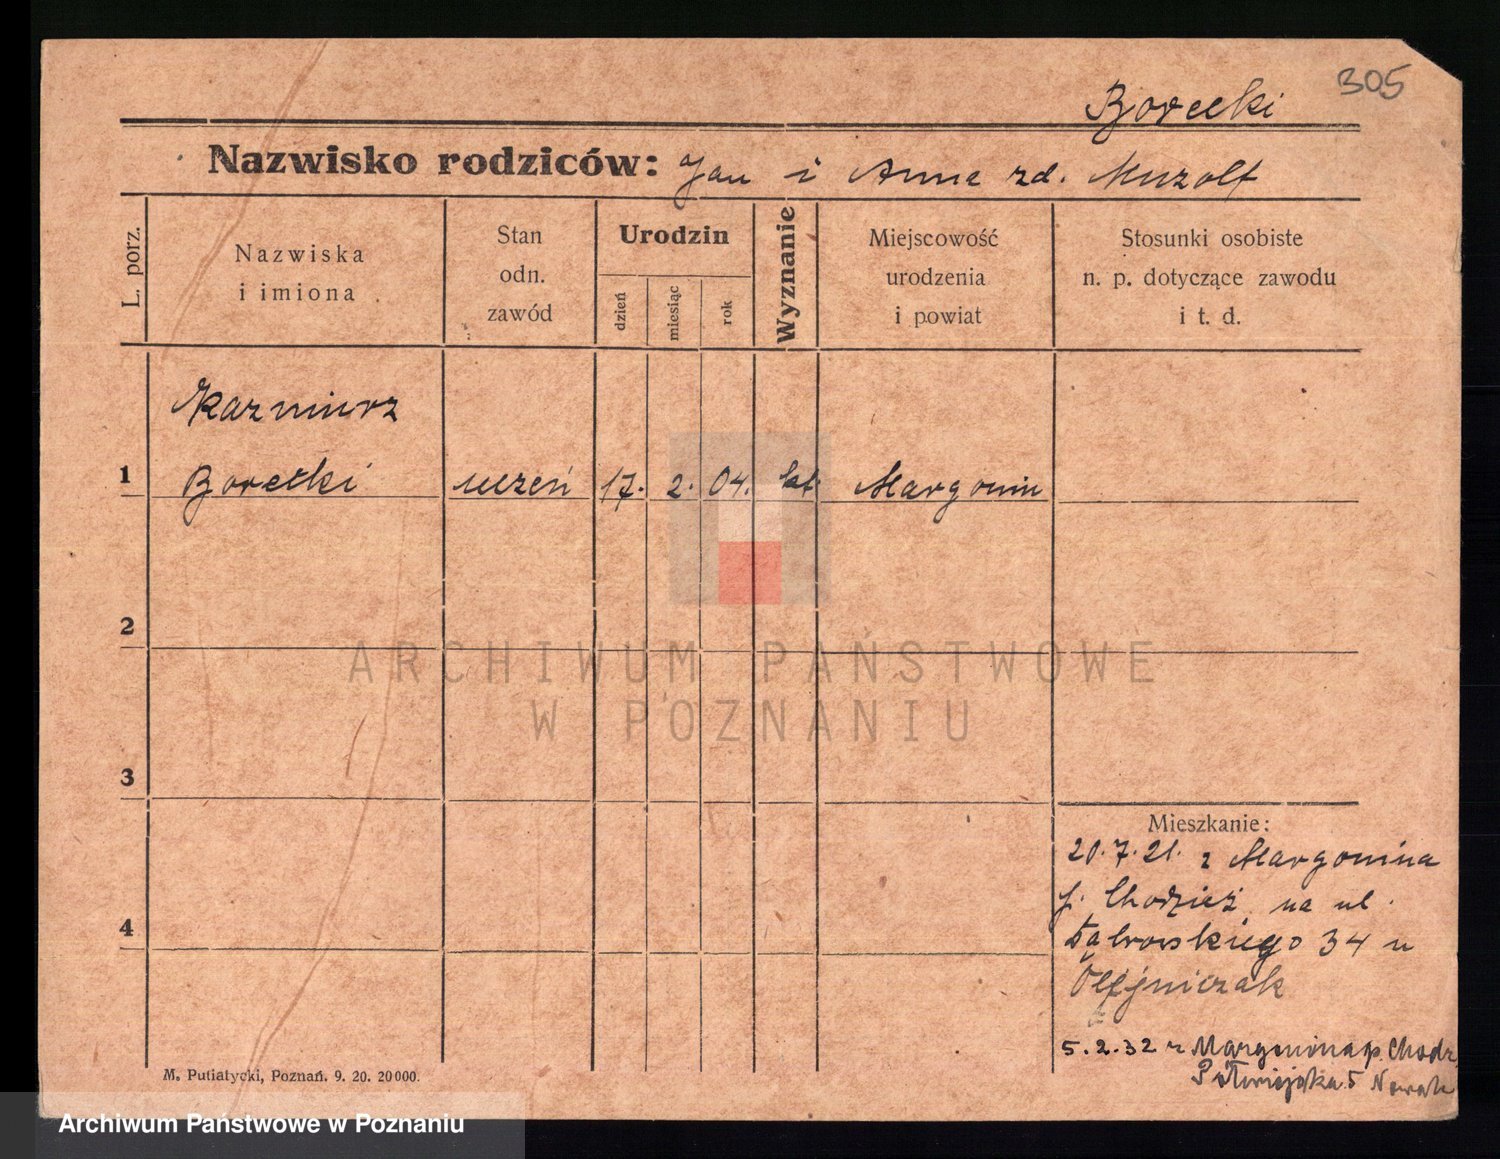 305
Borecki
Nazwisko rodziców: Jan i Anna zd. Muzolf
L. porz.
Nazwiska
i imiona
Stan
odn.
zawód
Urodzin
dzień
miesiąc
rok
Wyznanie
Miejscowość
urodzenia
i powiat
Stosunki osobiste
n. p. dotyczące zawodu
i t. d.
Kazmierz
1 Borecki uczeń 17. 2. 04. kat. Margonin
2
ARCHIWUM PAŃSTWOWE
W POZNANIU
3
Mieszkanie:
20.7.21. z Margonina
p. Chodzież, na ul.
4
Dąbrowskiego 34 u
Olejniczak
5.2.32 z Margonina p. Chodz
Półwiejska 5 Nowak
M. Putiatycki, Poznań. 9. 20. 20000.
Archiwum Państwowe w Poznaniu